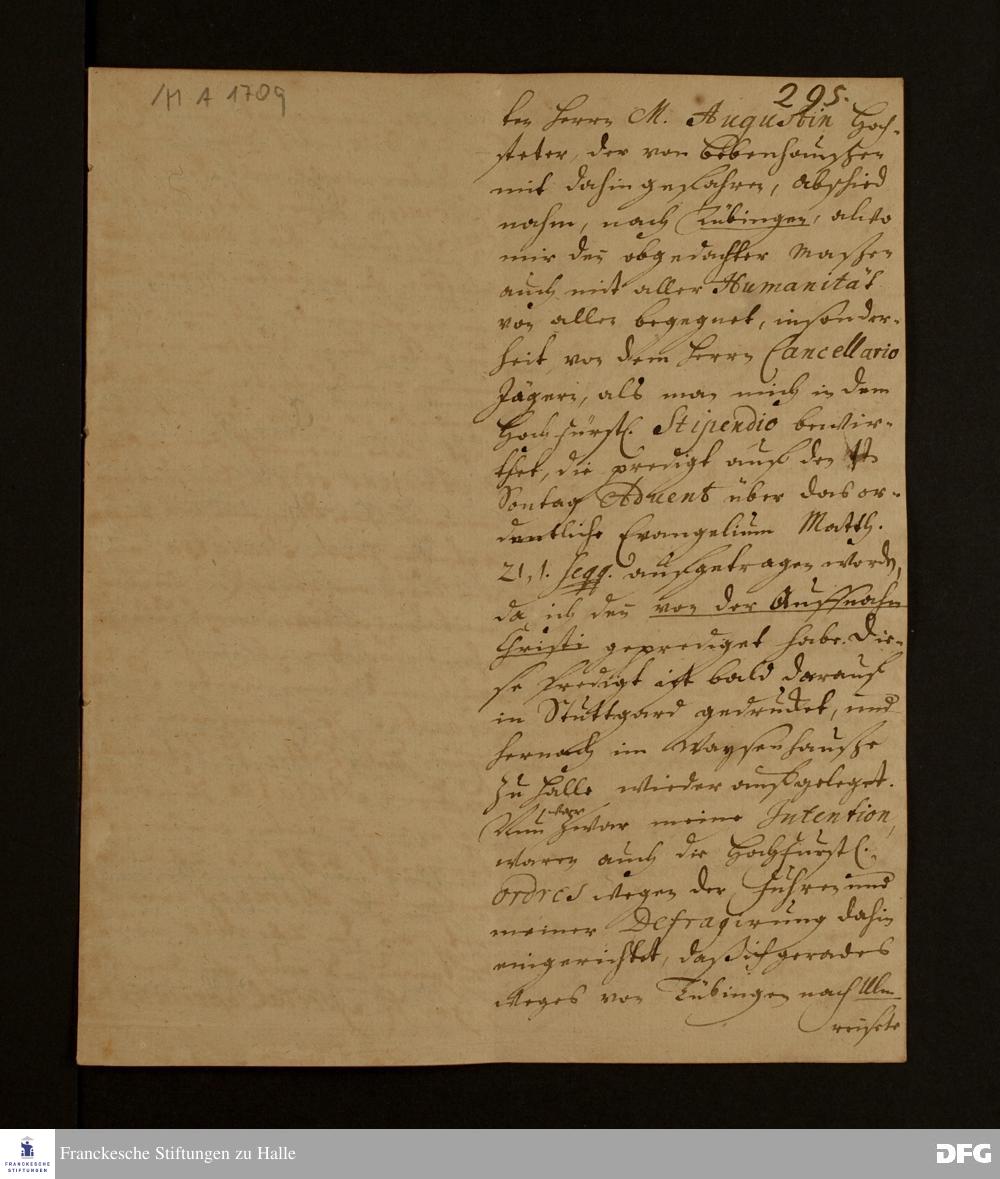 /H A 1709
295.
ten Herrn M. Augustin Hoch-
steter, der von Bebenhaußen
mit dahin gefahren, abschied
nahm, nach Tübingen, alwo
mir den obgedachter Maßen
auch mit aller Humanität
von allen begegnet, insonder-
heit von dem Herrn Cancellario
Jägern, als man mich in dem
Hochfürstl. Stipendio bewir-
thet, die predigt auf den
Sontag Advent über das or-
dentliche Evangelium Matth.
21, 1. seqq. aufgetragen worden,
da ich den von der Auffnahm
Christi geprediget habe. Die-
se Predigt ist bald darauf
in Stuttgard gedrucket, und
hernach im Waysenhauße
zu Halle wieder aufgeleget.
Nun war zwar meine Intention,
waren auch die Hochfürstl.
ordres wegen der Fuhren und
meiner Defragirung dahin
eingerichtet, daß ich gerades
Weges von Tübingen nach Ulm
reisete
FRANCKESCHE
STIFTUNGEN
Franckesche Stiftungen zu Halle
DFG